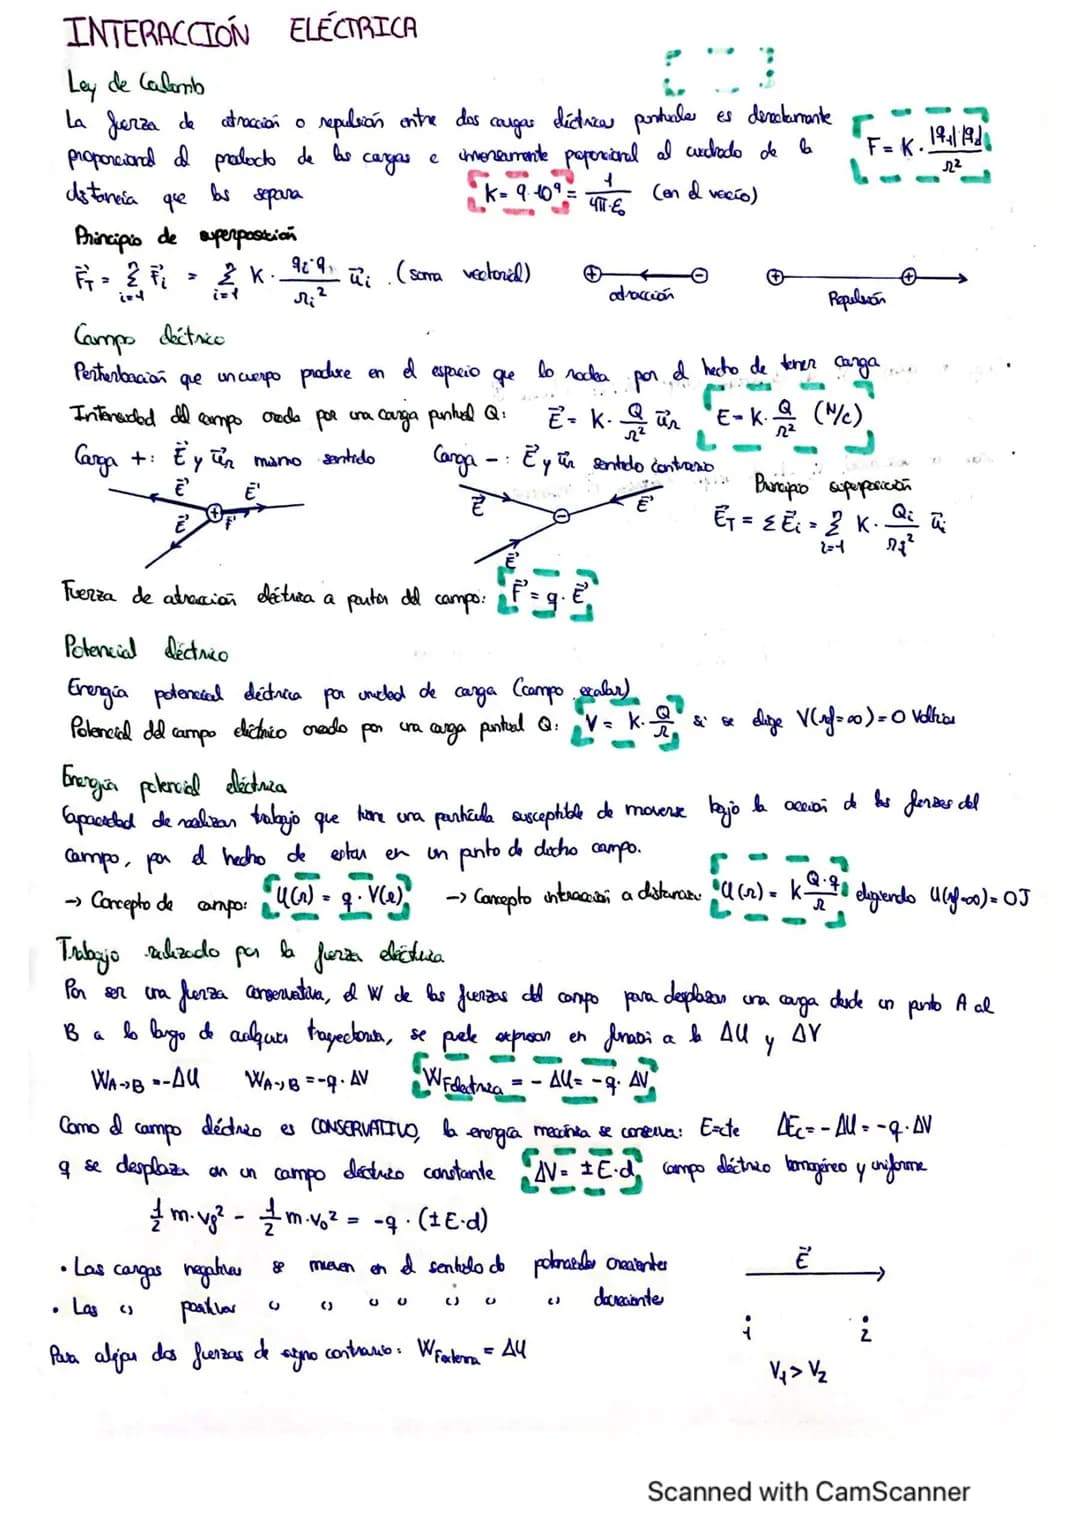 INTERACCIÓN ELÉCTRICA
Ley de Coulomb
La fuerza de atracción o repulsión entre dos cargas eléctricas puntuales es directamente
proporcional al producto de las cargas e inversamente proporcional al cuadrado de la
distancia que las separa
F = K · |q1| |q2| / r²
K = 9·10⁹ = 1 / 4π·ε₀ (en el vacío)
Principio de superposición
F⃗T = Σ F⃗i = Σ K · qi·q / ri² u⃗i . (suma vectorial)
i=1 i=1
+ − atracción
+ + Repulsión
Campo eléctrico
Perturbación que un cuerpo produce en el espacio que lo rodea por el hecho de tener carga
Intensidad del campo creado por una carga puntual Q: E⃗ = K · Q/r² u⃗r E = K · Q/r² (N/C)
Carga +: E⃗ y u⃗r mismo sentido
Carga −: E⃗ y u⃗r sentido contrario
E⃗ E⃗ E⃗ F⃗
E⃗ E⃗ E⃗
Principio superposición
E⃗T = Σ E⃗i = Σ K · Qi / ri² u⃗i
i=1
Fuerza de atracción eléctrica a partir del campo: F⃗ = q · E⃗
Potencial eléctrico
Energía potencial eléctrica por unidad de carga (campo escalar)
Potencial del campo eléctrico creado por una carga puntual Q: V = K · Q/r si se elige V(ref=∞) = 0 Voltios
Energía potencial eléctrica
Capacidad de realizar trabajo que tiene una partícula susceptible de moverse bajo la acción de las fuerzas del
campo, por el hecho de estar en un punto de dicho campo.
→ Concepto de campo: U(r) = q · V(r) → Concepto interacción a distancia: U(r) = K Q·q / r eligiendo U(ref=∞) = 0J
Trabajo realizado por la fuerza eléctrica
Por ser una fuerza conservativa, el W de las fuerzas del campo para desplazar una carga desde un punto A al
B a lo largo de cualquier trayectoria, se puede expresar en función a la ΔU y ΔV
WA→B = -ΔU WA→B = -q · ΔV WFeléctrica = - ΔU = -q · ΔV
Como el campo eléctrico es CONSERVATIVO, la energía mecánica se conserva: E=cte ΔEc = - ΔU = -q · ΔV
q se desplaza en un campo eléctrico constante ΔV = ±E·d campo eléctrico homogéneo y uniforme
½ m·vf² - ½ m·v₀² = -q · (±E·d)
· Las cargas negativas se mueven en el sentido de potenciales crecientes
· Las " positivas " " " " " " " decreciente
Para alejar dos fuerzas de signo contrario: WFexterna = ΔU
E⃗
1 2
V₁ > V₂
Scanned with CamScanner